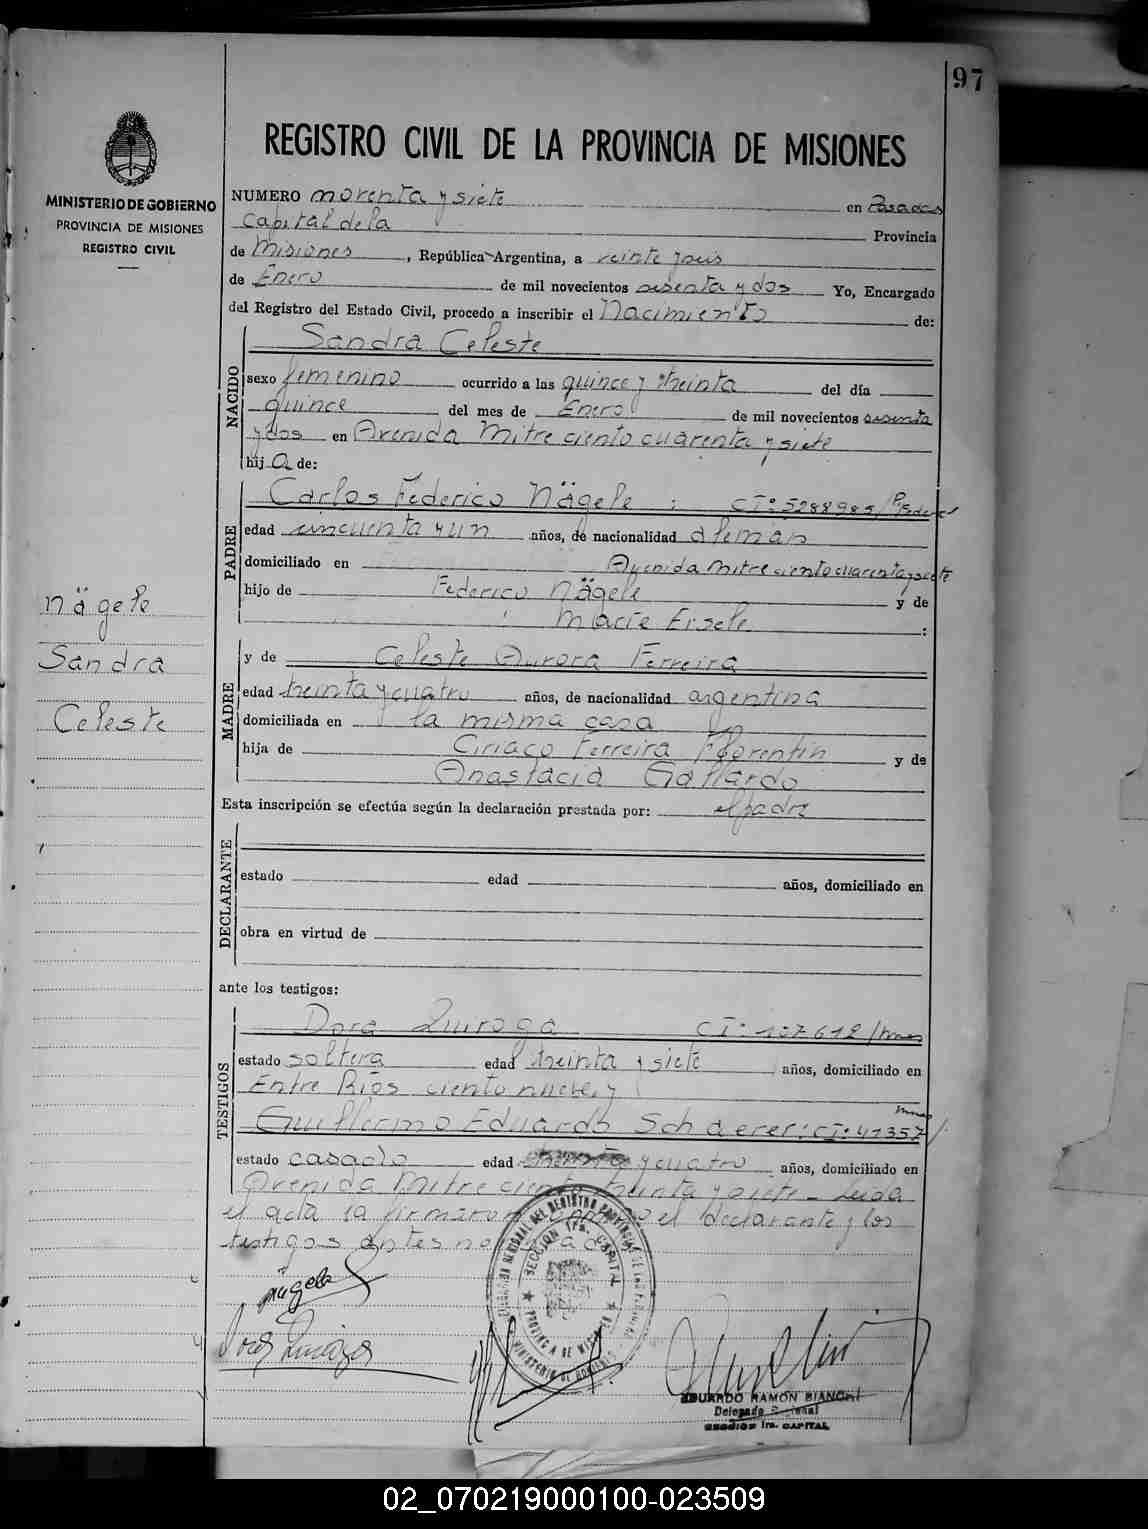 97
REGISTRO CIVIL DE LA PROVINCIA DE MISIONES
MINISTERIO DE GOBIERNO
PROVINCIA DE MISIONES
REGISTRO CIVIL
NUMERO noventa y siete en Posadas
Capital de la Provincia
de Misiones, República Argentina, a veinte y seis
de Enero de mil novecientos sesenta y dos Yo, Encargado
del Registro del Estado Civil, procedo a inscribir el Nacimiento de:
NACIDO
Sandra Celeste
sexo femenino ocurrido a las quince y treinta del día
quince del mes de Enero de mil novecientos sesenta
y dos en Avenida Mitre ciento cuarenta y siete
hija de:
PADRE
Carlos Federico Nägele : CI: 5288985/P.Federal
edad cincuenta y un años, de nacionalidad aleman
domiciliado en Avenida Mitre ciento cuarenta y siete
hijo de Federico Nägele y de
Marie Eisele :
Nägele
Sandra
Celeste
MADRE
y de Celeste Aurora Ferreira
edad treinta y cuatro años, de nacionalidad argentina
domiciliada en la misma casa
hija de Ciriaco Ferreira Florentin y de
Anastacia Gallardo
Esta inscripción se efectúa según la declaración prestada por: el padre
DECLARANTE
estado edad años, domiciliado en
obra en virtud de
ante los testigos:
TESTIGOS
Dora Quiroga CI: 107.612/mnes
estado soltera edad treinta y siete años, domiciliado en
Entre Ríos ciento nueve, y
Guillermo Eduardo Schaerer: CI: 41357/ mnes
estado casado edad y cuatro años, domiciliado en
Avenida Mitre ciento treinta y siete - Leida
el acta la firmaron el declarante y los
testigos antes
Nägele
Dora Quiroga
SECCION 1ra. CAPITAL
PROVINCIA DE MISIONES
MINISTERIO DE GOBIERNO
EDUARDO RAMON BIANCHI
Delegado
SECCION 1ra. CAPITAL
02_070219000100-023509